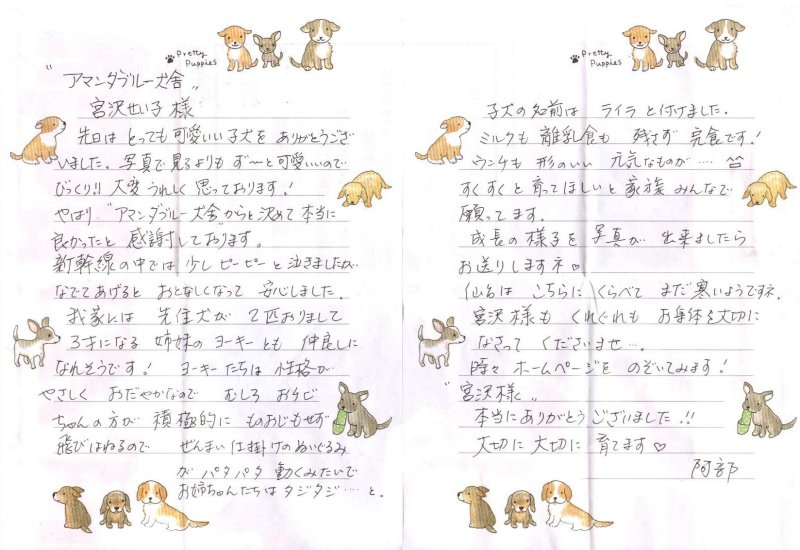 Pretty Puppies
"アマンダブルー犬舎"
宮沢せい子 様
先日は とっても可愛いい子犬を ありがとうござ
いました。写真で見るよりも ず〜と可愛いいので
びっくり!! 大変 うれしく 思っております!
やはり "アマンダブルー犬舎"からと決めて本当に
良かったと 感謝しております。
新幹線の中では 少し ピーピーと泣きましたが
なでてあげると おとなしくなって 安心しました。
我家には 先住犬が 2匹おりまして
3才になる 姉妹の ヨーキーとも 仲良しに
なれそうです! ヨーキーたちは 性格が
やさしく おだやかなので むしろ おチビ
ちゃんの方が 積極的に ものおじもせず
飛びはねるので ぜんまい仕掛けのぬいぐるみ
が パタパタ 動くみたいで
お姉ちゃんたちは タジタジ…… と。
Pretty Puppies
子犬の名前は ライラ と付けました。
ミルクも 離乳食も 残さず 完食です!
ウンチも 形のいい 元気なものが …
すくすくと育ってほしいと 家族 みんなで
願ってます。
成長の様子を 写真が 出来ましたら
お送りしますネ♡
仙台は こちらに くらべて まだ寒いようですネ。
宮沢様も くれぐれも お身体を大切に
なさって くださいませ…。
時々 ホームページを のぞいてみます!
"宮沢様"
本当にありがとうございました!!
大切に 大切に 育てます♡
阿部